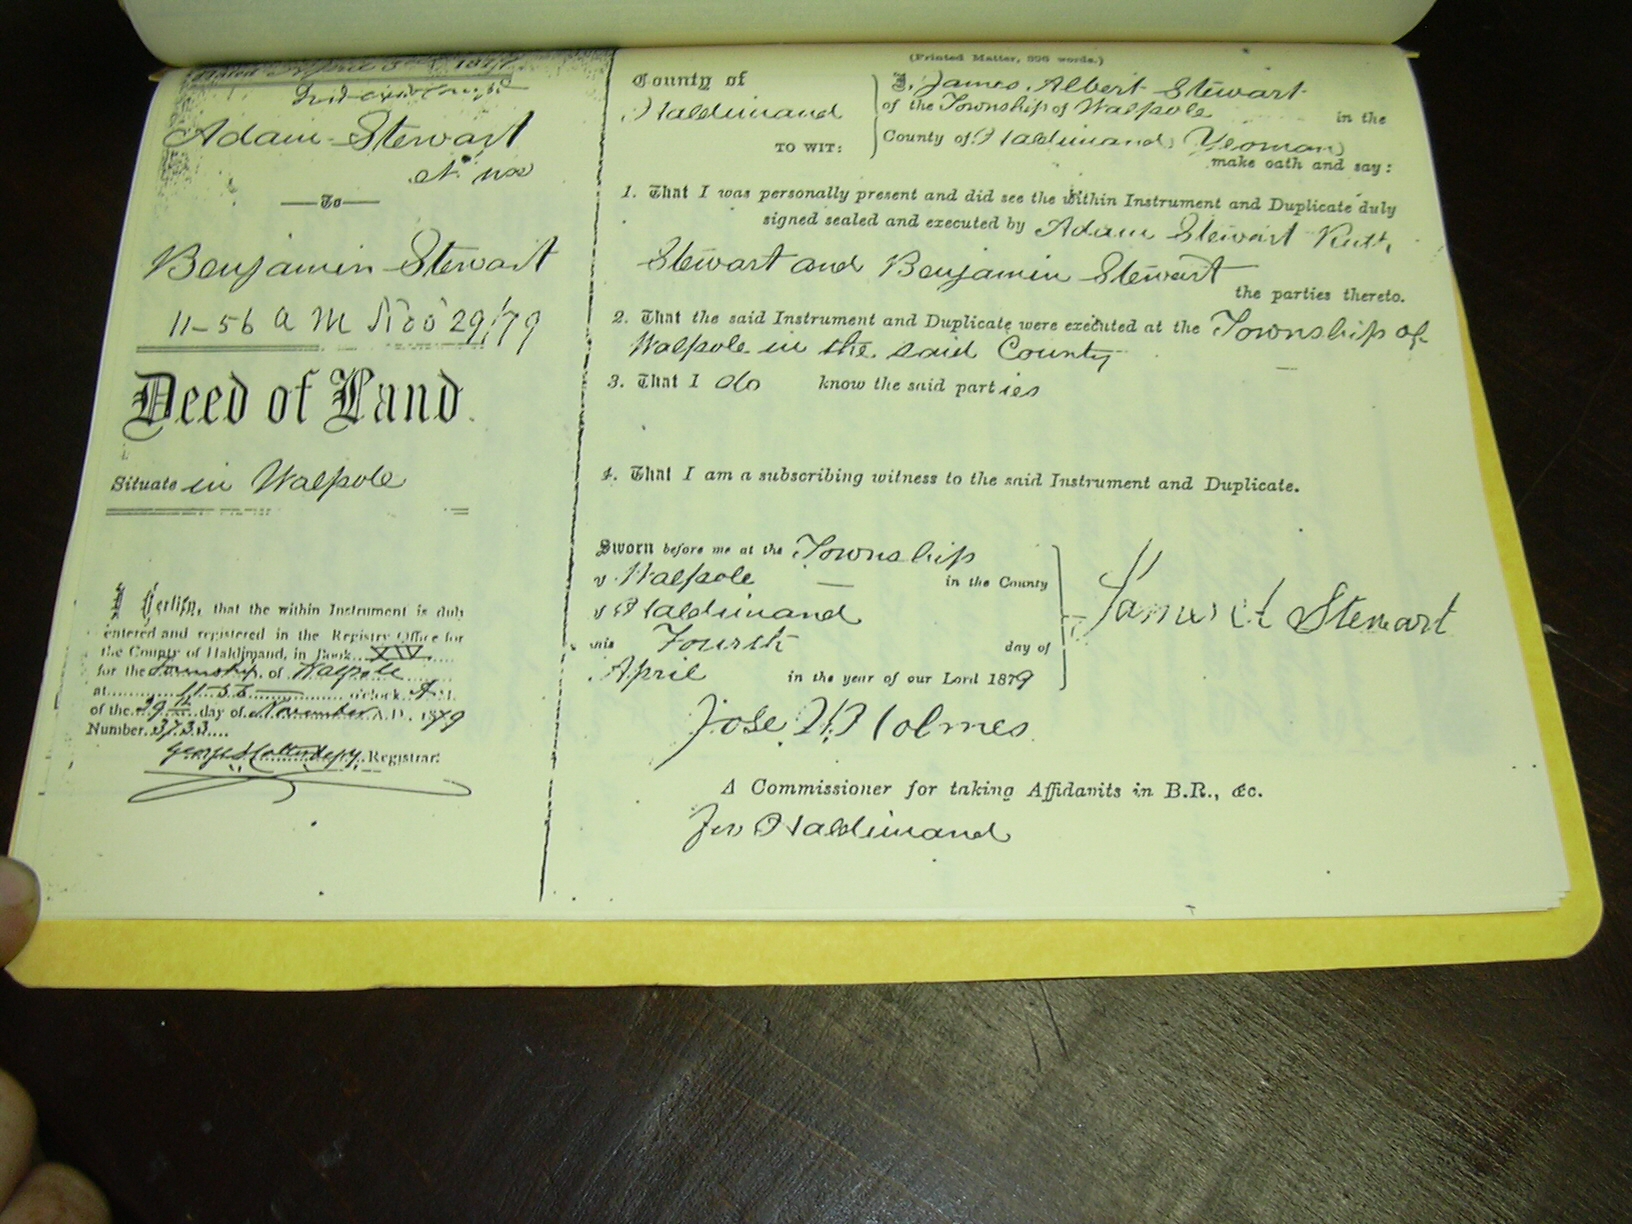 Dated April 3rd 187
Adam Stewart
To
Benjamin Stewart
11-56 a m Nov 29/79
Deed of Land.
Situate in Walpole
I Certify, that the within Instrument is duly
entered and registered in the Registry Office for
the County of Haldimand, in Book XIV
for the Township of Walpole
at 11-55 o'clock A.M.
of the 29th day of November A.D. 1879
Number 3733
George Registrar.
(Printed Matter, 396 words.)
County of
Haldimand
TO WIT:
I, James Albert Stewart
of the Township of Walpole in the
County of Haldimand, Yeoman
make oath and say:
1. That I was personally present and did see the within Instrument and Duplicate duly
signed sealed and executed by Adam Stewart Ruth
Stewart and Benjamin Stewart
the parties thereto.
2. That the said Instrument and Duplicate were executed at the Township of
Walpole in the said County
3. That I do know the said parties
4. That I am a subscribing witness to the said Instrument and Duplicate.
Sworn before me at the Township
of Walpole in the County
of Haldimand
this Fourth day of
April in the year of our Lord 1879
James A Stewart
Jose W Holmes
A Commissioner for taking Affidavits in B.R., &c.
for Haldimand